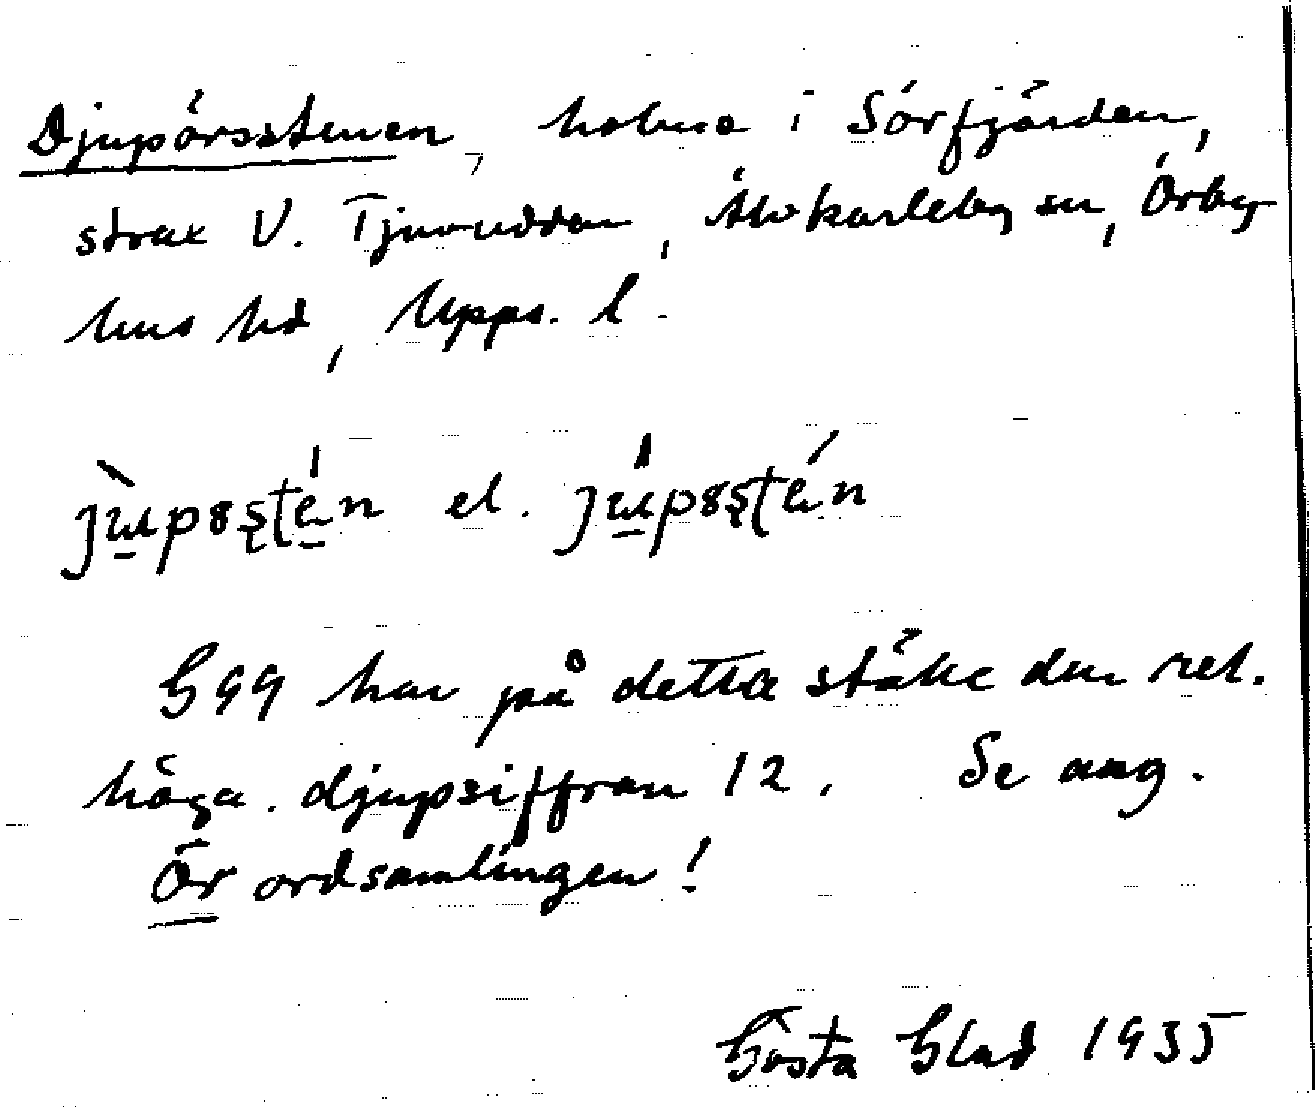 Djupörsstenen, holme i Sörfjärden,
strax V. Tjuvudden, Älvkarleby sn, Örby
hus hd, Upps. l.
jùpsştén el. júpsştén
G 99 har på detta ställe den rel.
höga. djupsiffran 12. Se ang.
Ör ordsamlingen!
Gösta Blad 1935